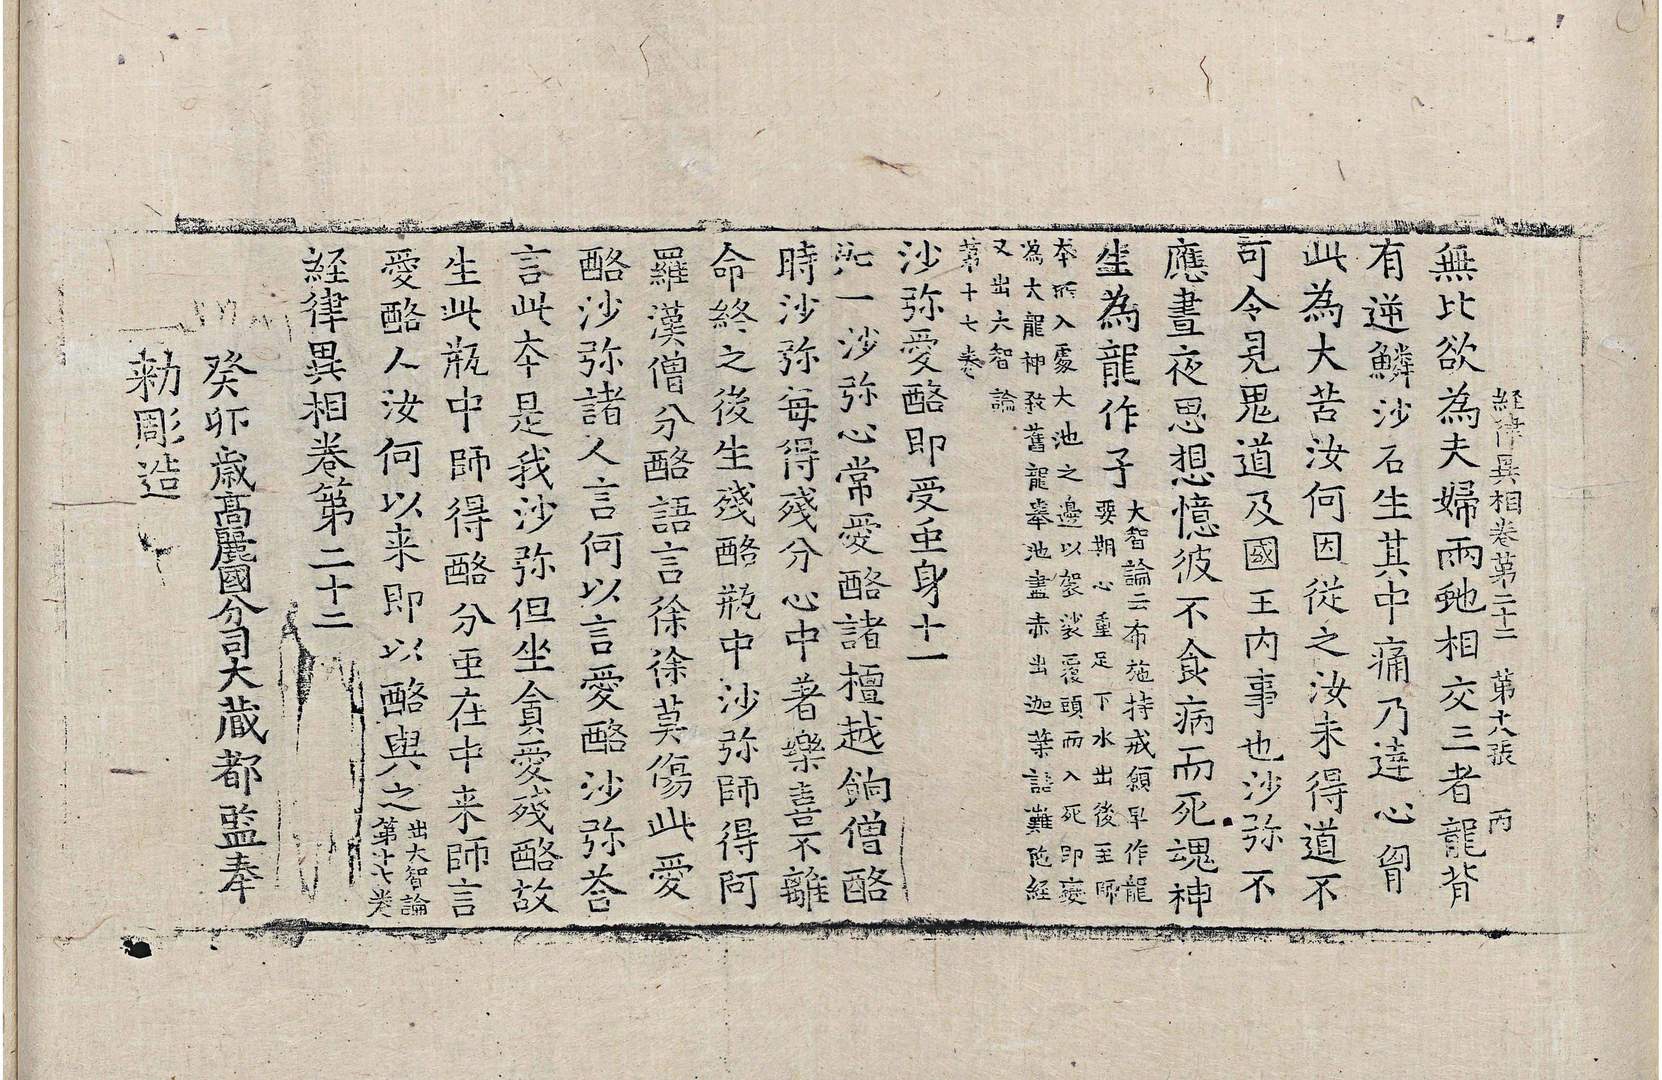 経律異相卷第二十二 第十八張 丙
無比欲為夫婦兩虵相交三者龍背
有逆鱗沙石生其中痛乃達心胷
此為大苦汝何因從之汝未得道不
可令見鬼道及國王內事也沙弥不
應晝夜思想憶彼不食病而死魂神
生為龍作子
大智論云布施持戒願早作龍
要期心重足下水出後至師
本所入處大池之邊以袈裟覆頭而入死即變
為大龍神殺舊龍舉池盡赤出迦葉詰難陁經
又出大智論
第十七卷
沙弥愛酪即受虫身十一
一沙弥心常愛酪諸檀越餉僧酪
時沙弥每得殘分心中著樂喜不離
命終之後生殘酪瓶中沙弥師得阿
羅漢僧分酪語言徐徐莫傷此愛
酪沙弥諸人言何以言愛酪沙弥荅
言此本是我沙弥但坐貪愛殘酪故
生此瓶中師得酪分虫在中来師言
愛酪人汝何以来即以酪與之
出大智論
第十七卷
経律異相卷第二十二
癸卯歲高麗國分司大藏都監奉
勑彫造